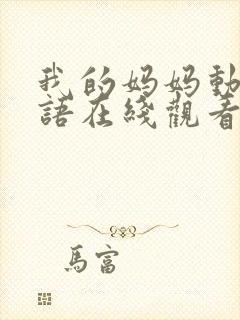 我的妈妈動
語在綫觀看
馬富